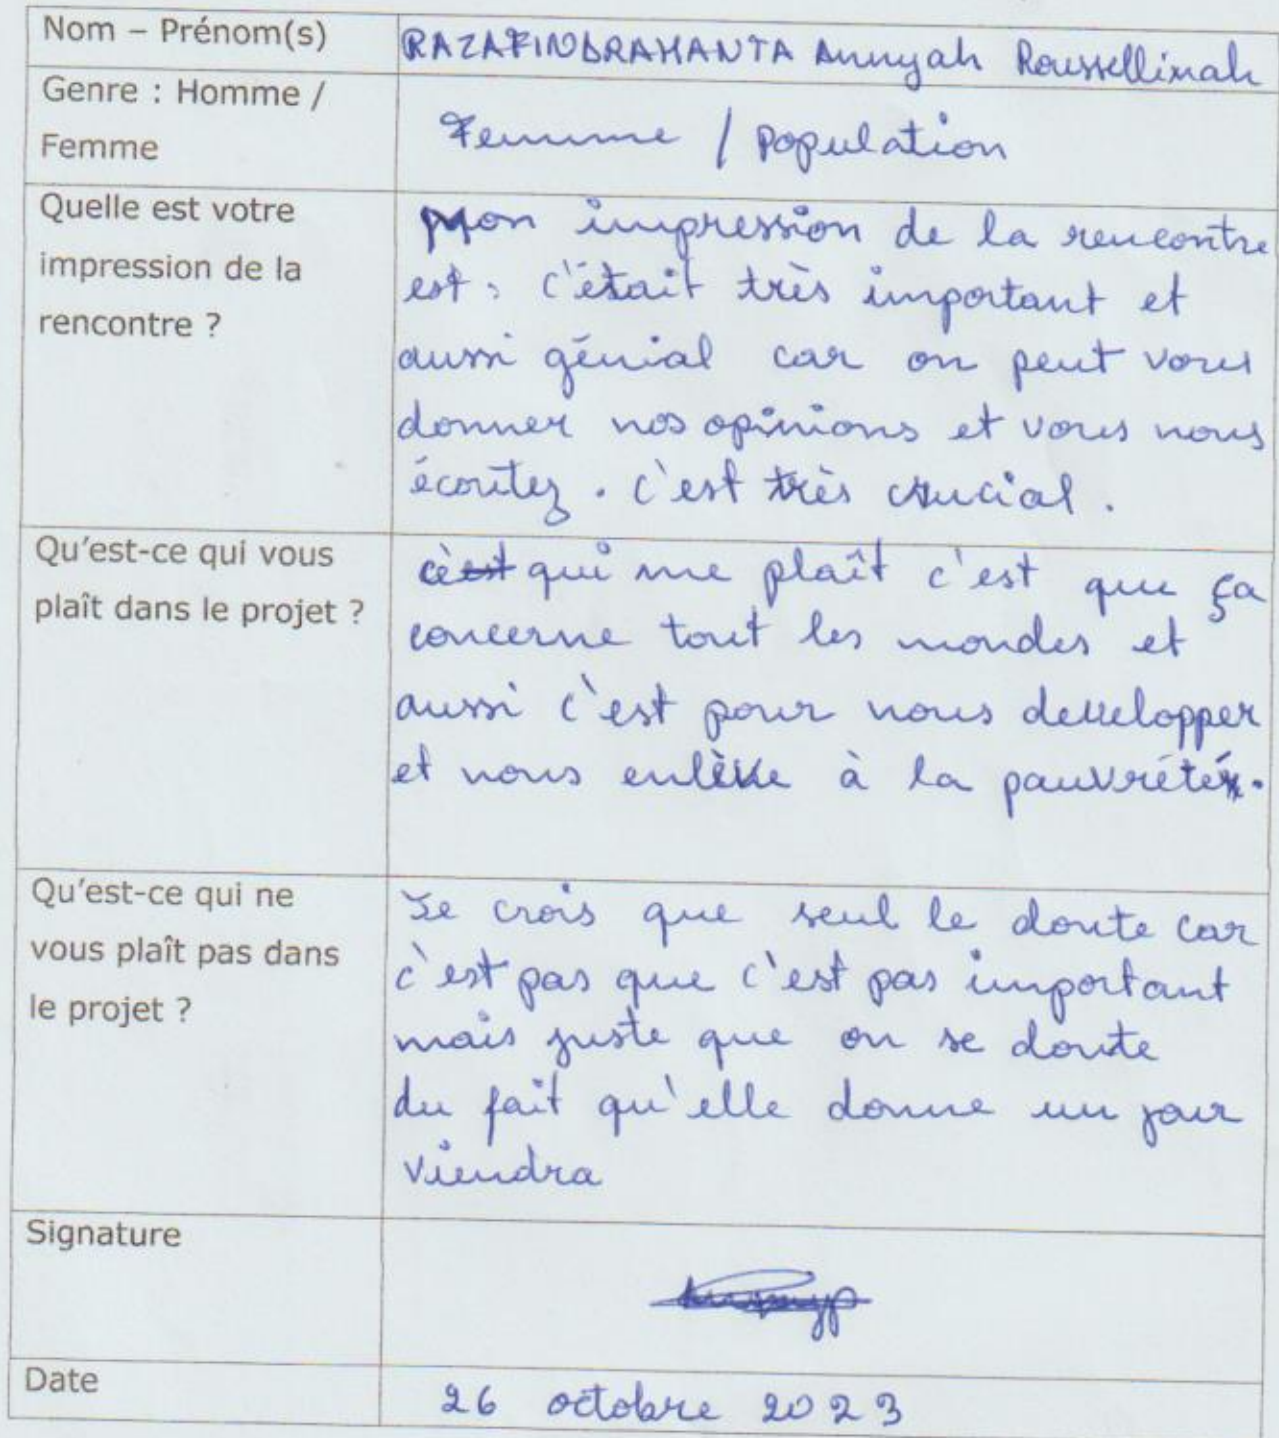 Nom – Prénom(s)
RAZAFINDRAMANTA Annyah Roussellinah
Genre : Homme /
Femme
Femme / Population
Quelle est votre
impression de la
rencontre ?
Mon impression de la rencontre
est, c'était très important et
aussi génial car on peut vous
donner nos opinions et vous nous
écoutez. c'est très crucial.
Qu'est-ce qui vous
plaît dans le projet ?
qui me plaît c'est que ça
concerne tout les mondes et
aussi c'est pour nous devellopper
et nous enlève à la pauvrété.
Qu'est-ce qui ne
vous plaît pas dans
le projet ?
Je crois que seul le doute car
c'est pas que c'est pas important
mais juste que on se doute
du fait qu'elle donne un jour
viendra
Signature
Date
26 octobre 2023